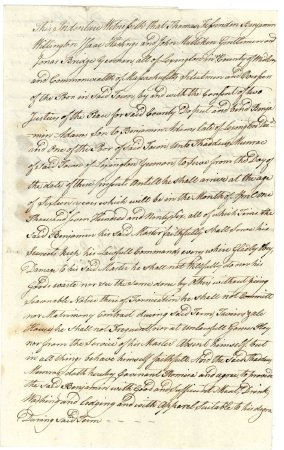 This Indenture Witnesseth that Thomas Benjamin
Wellington Isaac Hastings and John Mulliken Gentlemen and
Jonas Bridge Yeoman, all of Lexington in County of
and Commonwealth of Massachusetts Selectmen and Overseers
of the Poor in Said Town, by and with the Consent of two
Justices of the Peace for Said County Do put and bind Benja
min Adams Son to Benjamin Adams Late of Lexington
and One of the Poor of Said Town Unto Thaddeus Munroe
of Said Town of Lexington Yeoman to Serve from the Day of
the date of these presents Untill he Shall arrive at the age
of Sixteen years which will be in the Month of April One
Thousand Seven Hundred and Ninety five, all of which time the
Said Benjamin his Said Master faithfully Shall Serve his
Secrets keep his Lawfull Commands every where Gladly Obey
Damage to his Said Master he Shall not Willfully do nor his
Goods waste nor see the Same done by Others without giving
seasonable Notice there of Fornication he Shall not Commit
nor Matrimony Contract During Said Term
Houses he Shall not Frequent nor at Unlawfull Games Play
nor from the Service of his Master Absent himself but
in all things behave himself faithfull. And the Said Thaddeus
Munroe doth hereby Covenant Promise and agree to provide
the Said Benjamin with Good and Sufficient Meat, Drink,
Washing and Lodging and with Apparel Suitable to his degree
During Said Term